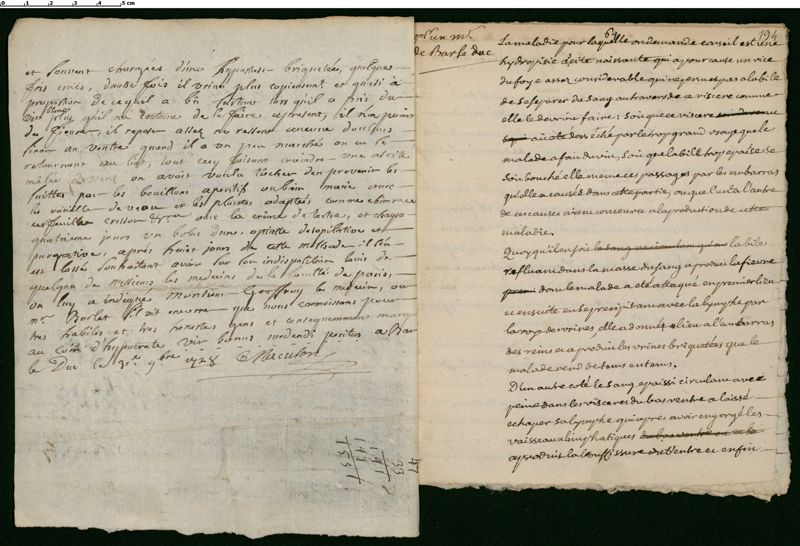 et souvent chargées d'une hypostase briquetée, quelques
fois crües, d'autre fois il urine plus copieusement et quasi à
proportion de ce qu'il a bû surtout lors qu'il a pris du
vin blanc plus qu'il n'a coutume de le faire, a present, il n'a point
de fievre, il repose assez
au ventre quand il a un peu marché ou en se
retournant au lit, tout cecy faisant craindre une ascite
on avoit voulu tacher d'en prevenir les
suittes par les bouillons aperitifs au bain marie avec
la roüelle de veau et les plantes adaptées comme
cresson avec la crème de tartre, et chaque
quatrieme jours un bolus d'une opiatte desopilative et
purgative, après huit jours de cette methode il
est lassé souhaitant avoir sur son indisposition l'avis de
quelqu'un de messieurs les medecins de la faculté de paris,
on luy a indiqué Monsieur Geoffroy le medecin, ou
mr. Burlet s'il vit encore que nous connoissons pour
tres habiles et tres honestes gens et consequemment marqués
au coin d'hypocrate vir bonus medendi peritus a Bar
le Duc le 3e. 9bre 1728
47
33
141
141
1551
pr un mr.
de Bar le duc
64
194
La maladie pour laquelle on demande conseil est une
hydropisie ascite naissante qui a pour cause un vice
du foye assez considerable qui ne permet pas a la bile
de se separer du sang au travers de ce viscere comme
elle devroit faire; soit que ce viscere
ait eté desséché par le trop grand usage que le
malade a fait du vin, soit que la bile trop epaisse se
soit bouché elle meme ces passages par les embarras
qu'elle a causés dans cette partie, ou que l'un et l'autre
de ces causes aient concouru a la production de cette
maladie.
Quoyqu'il en soit le sang la bile
refluant dans la masse du sang a produit la fievre
dont le malade a eté attaqué en premier lieu
et ensuite en se precipitant avec la lymphe par
la voye des urines elle a donné lieu a l'embarras
des reins et a produit les urines briquetées que le
malade rend de tems en tems.
D'un autre coté le sang epaissi circulant avec
peine dans les visceres du bas ventre a laissé
echaper sa lymphe qui apres avoir engorgé les
vaisseaux limphatiques du bas ventre
a produit la bouffissure du ventre et enfin